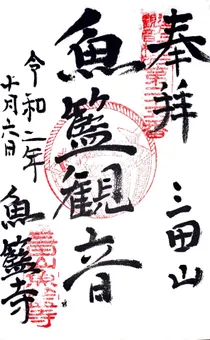 奉拝
三田山
魚籃観音
令和二年
十月六日
魚籃寺